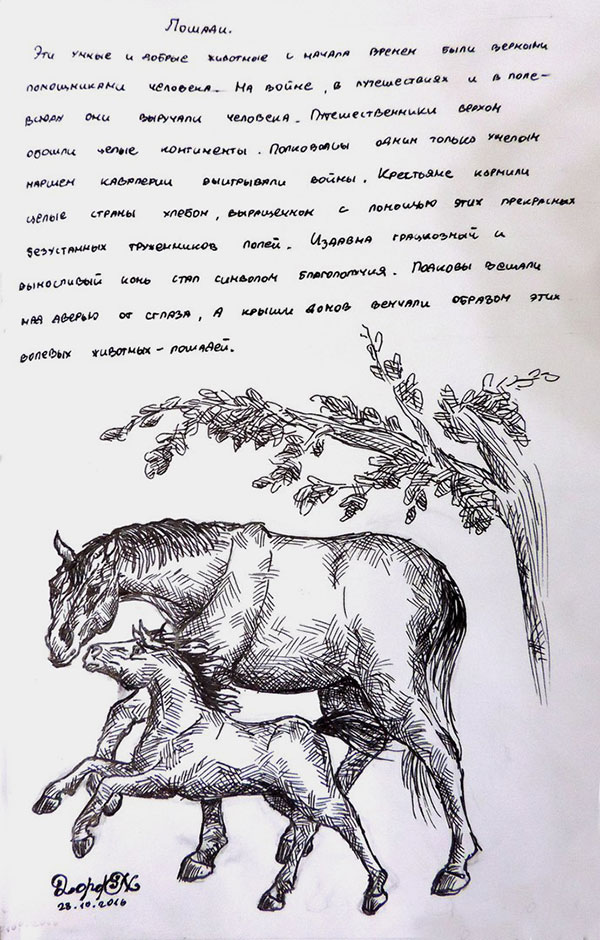 Лошади.
Эти умные и добрые животные с начала времен были верными
помощниками человека. На войне, в путешествиях и в поле-
всюду они выручали человека. Путешественники верхом
обошли целые континенты. Полководцы одним только умелым
маршем кавалерии выигрывали войны. Крестьяне кормили
целые страны хлебом, выращенном с помощью этих прекрасных
безустанных труженников полей. Издавна грациозный и
выносливый конь стал символом благополучия. Подковы вешали
над дверью от сглаза, а крыши домов венчали образом этих
волевых животных - лошадей.
28.10.2016